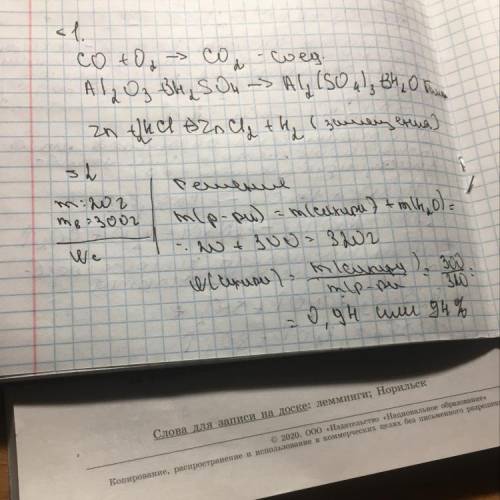 <1.
CO + O₂ → CO₂ - соед.
Al₂O₃ + 3H₂SO₄ → Al₂(SO₄)₃ + 3H₂O
Zn + 2HCl → ZnCl₂ + H₂ (замещения)
m = 20 г
mв = 300 г
Решение
m(р-ра) = m(сахара) + m(H₂O) =
= 20 + 300 = 320 г
= 300/320 =
= 0,94 или 94%
Слова для записи на доске: лемминги; Норильск
© 2020. ООО «Издательство «Национальное образование»
Копирование, распространение и использование в коммерческих целях без письменного разрешения